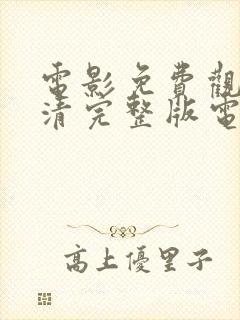 電影免費觀
清完整版電
高上優里子